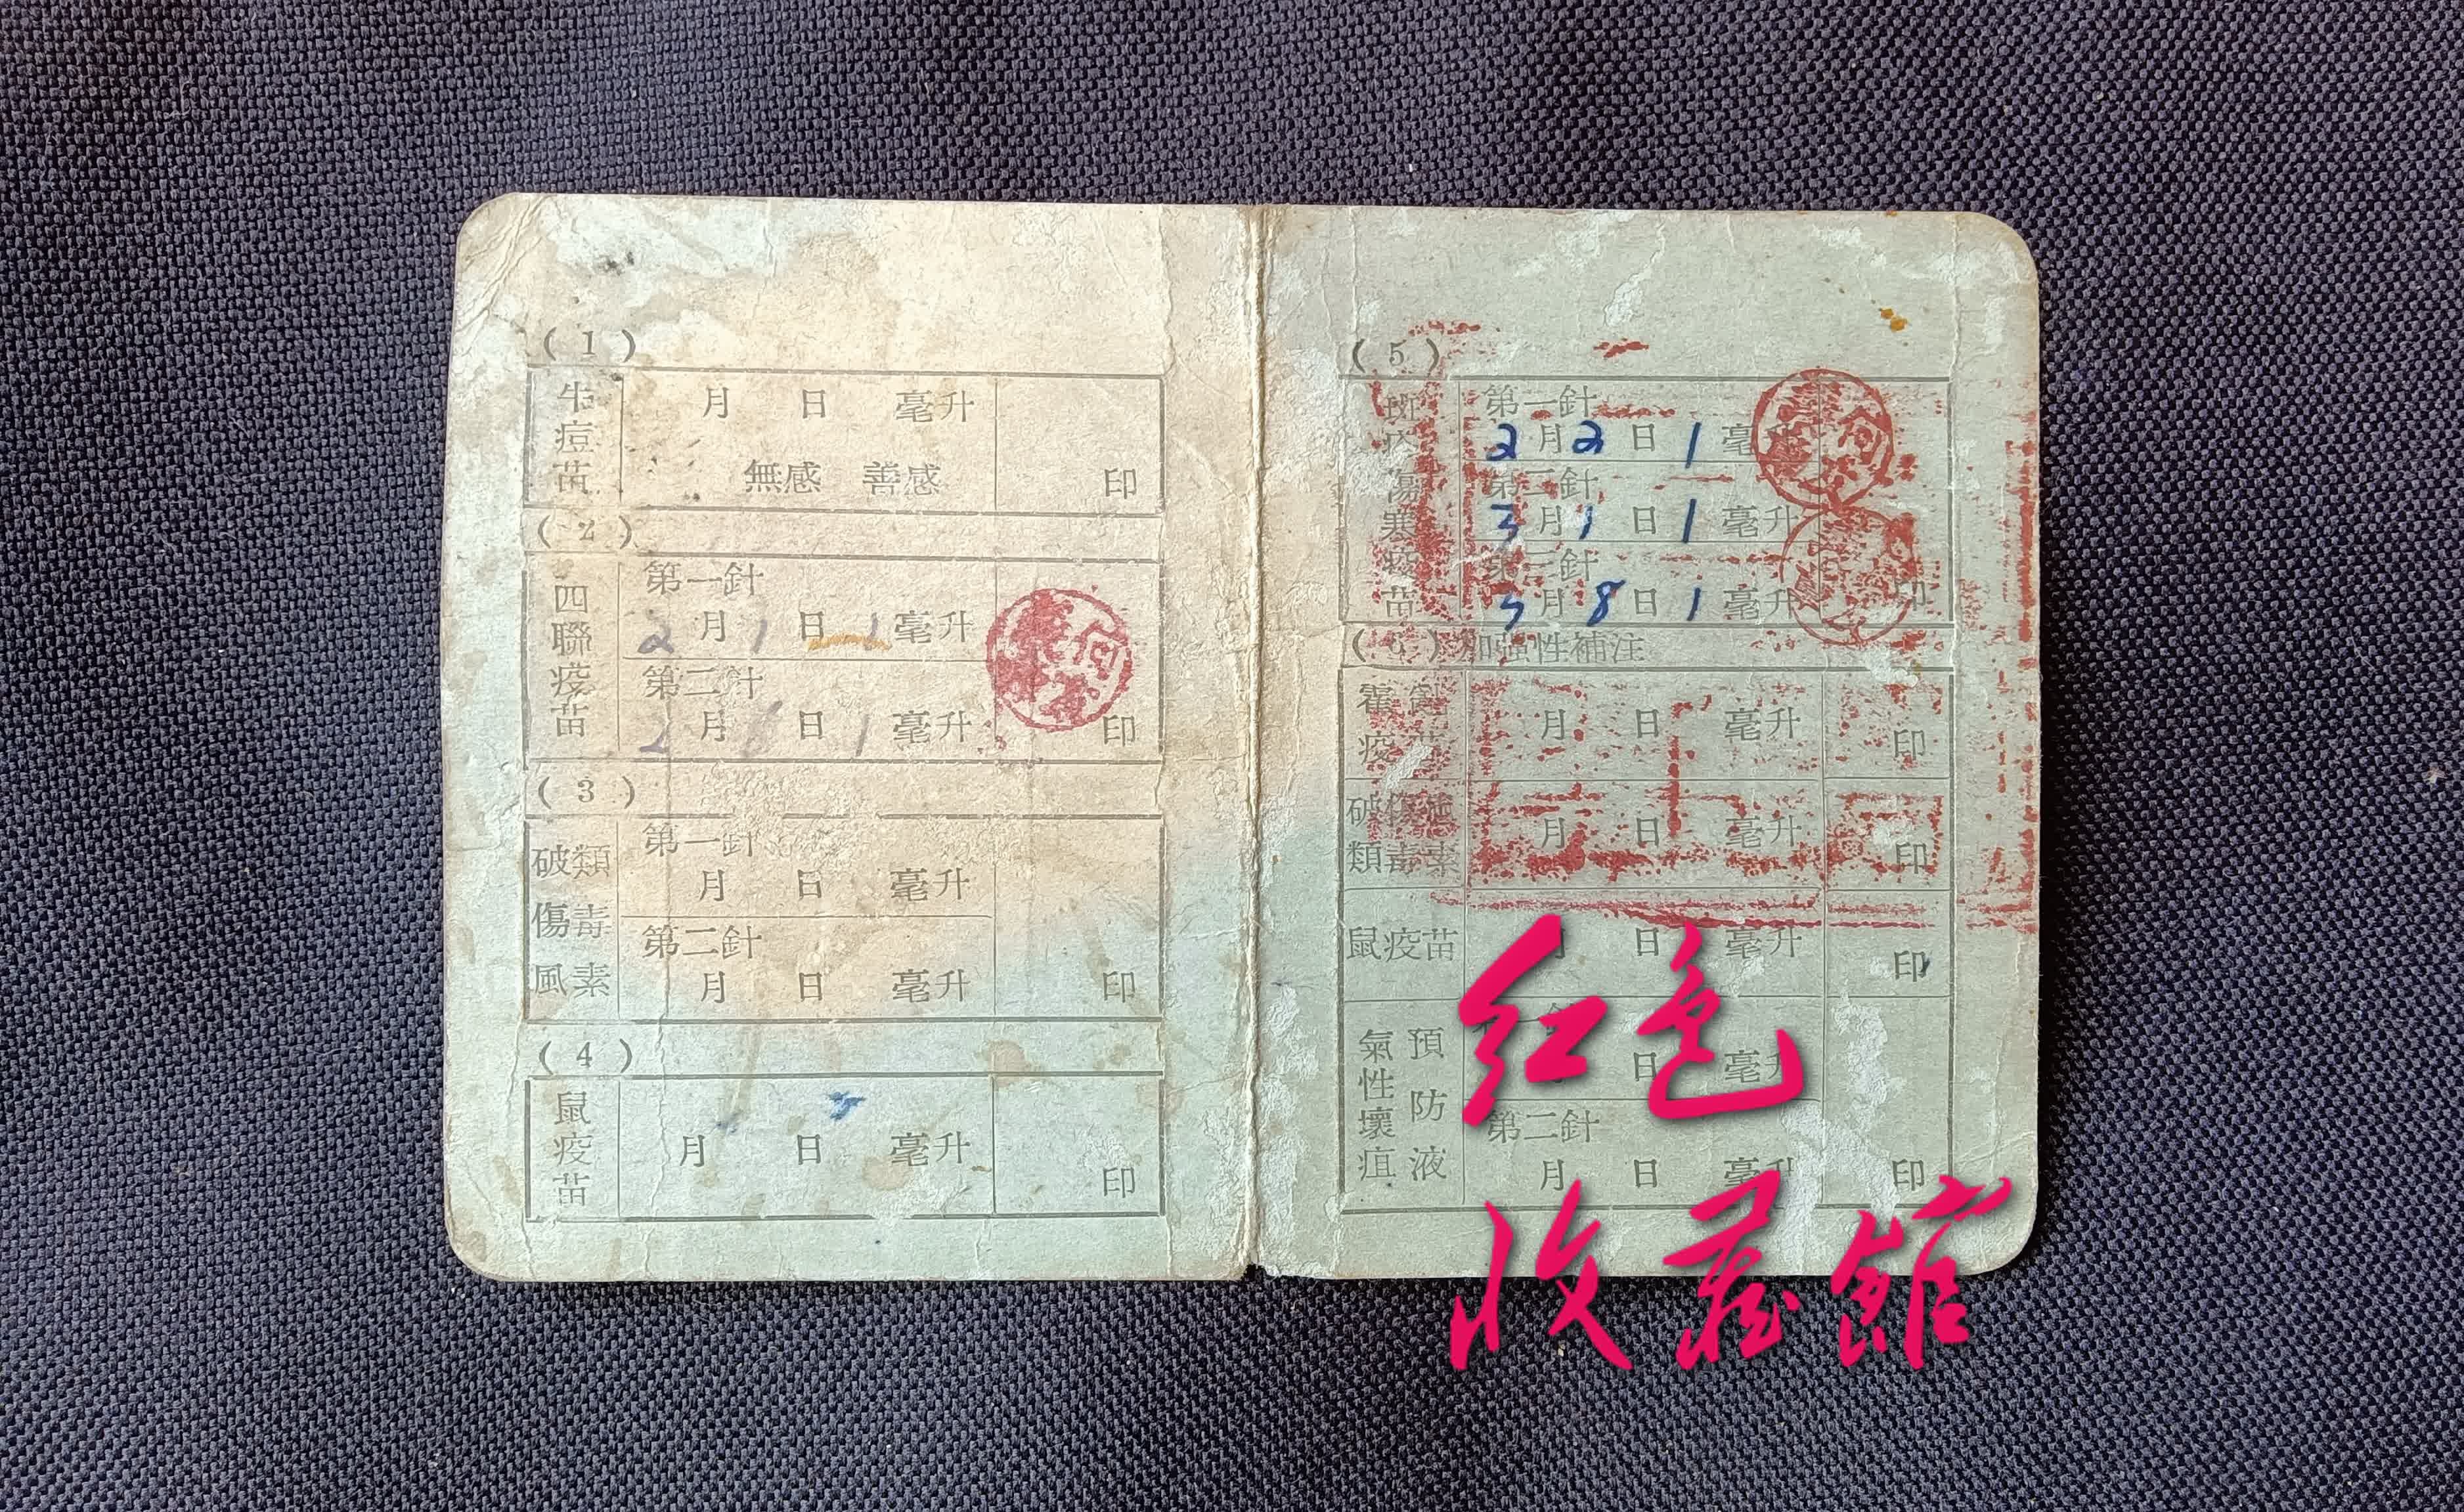 (1)
牛痘苗
月 日 毫升
無感 善感
印
(2)
四聯疫苗
第一針
2 月 1 日 1 毫升
第二針
2 月 8 日 1 毫升
印
(3)
破傷風類毒素
第一針
月 日 毫升
第二針
月 日 毫升
印
(4)
鼠疫苗
月 日 毫升
印
(5)
斑疹傷寒疫苗
第一針
2 月 2 日 1 毫
第二針
3 月 1 日 1 毫升
第三針
3 月 8 日 1 毫升
印
(6) 加強性補注
霍亂疫苗
月 日 毫升
印
破傷風類毒素
月 日 毫升
印
鼠疫苗
月 日 毫升
印
氣性壞疽預防液
第一針
日 毫升
第二針
月 日 毫升
印
红色
收藏館